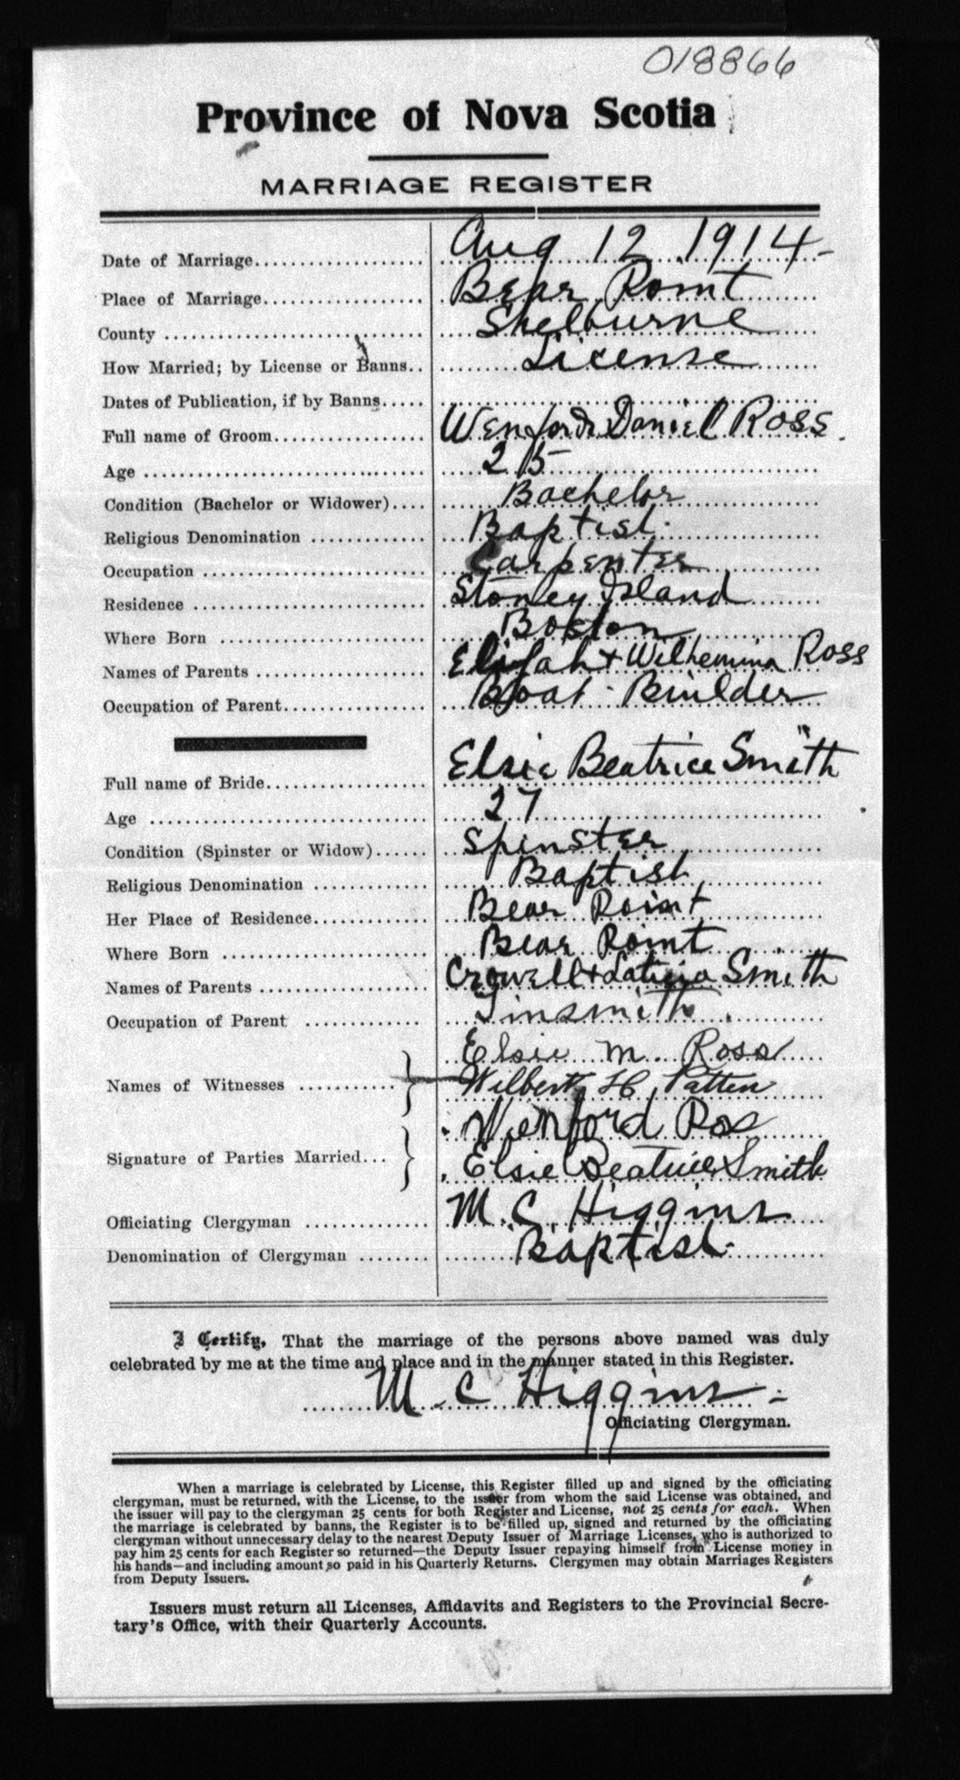 018866
Province of Nova Scotia
MARRIAGE REGISTER
Date of Marriage.................... Aug 12 1914-
Place of Marriage................... Bear Point
County .............................. Shelburne
How Married; by License or Banns.. License
Dates of Publication, if by Banns.....
Full name of Groom.................. Wenford Daniel Ross
Age .................................. 25
Condition (Bachelor or Widower).... Bachelor
Religious Denomination ............. Baptist
Occupation .......................... Carpenter
Residence ........................... Stoney Island
Where Born ......................... Boston
Names of Parents ................... Elijah & Wilhemina Ross
Occupation of Parent................ Boat Builder
Full name of Bride................... Elsie Beatrice Smith
Age .................................. 27
Condition (Spinster or Widow)...... Spinster
Religious Denomination ............. Baptist
Her Place of Residence.............. Bear Point
Where Born ......................... Bear Point
Names of Parents ................... Crowell & Smith
Occupation of Parent ............... Tinsmith
Elsie M. Ross
Names of Witnesses ............ Wilbert H Patten
Wenford Ross
Signature of Parties Married... Elsie Beatrice Smith
Officiating Clergyman ............... M. C. Higgins
Denomination of Clergyman ......... Baptist
I Certify, That the marriage of the persons above named was duly
celebrated by me at the time and place and in the manner stated in this Register.
M C Higgins
Officiating Clergyman.
When a marriage is celebrated by License, this Register filled up and signed by the officiating
clergyman, must be returned, with the License, to the issuer from whom the said License was obtained, and
the issuer will pay to the clergyman 25 cents for both Register and License, not 25 cents for each. When
the marriage is celebrated by banns, the Register is to be filled up, signed and returned by the officiating
clergyman without unnecessary delay to the nearest Deputy Issuer of Marriage Licenses, who is authorized to
pay him 25 cents for each Register so returned—the Deputy Issuer repaying himself from License money in
his hands—and including amount so paid in his Quarterly Returns. Clergymen may obtain Marriages Registers
from Deputy Issuers.
Issuers must return all Licenses, Affidavits and Registers to the Provincial Secre-
tary's Office, with their Quarterly Accounts.